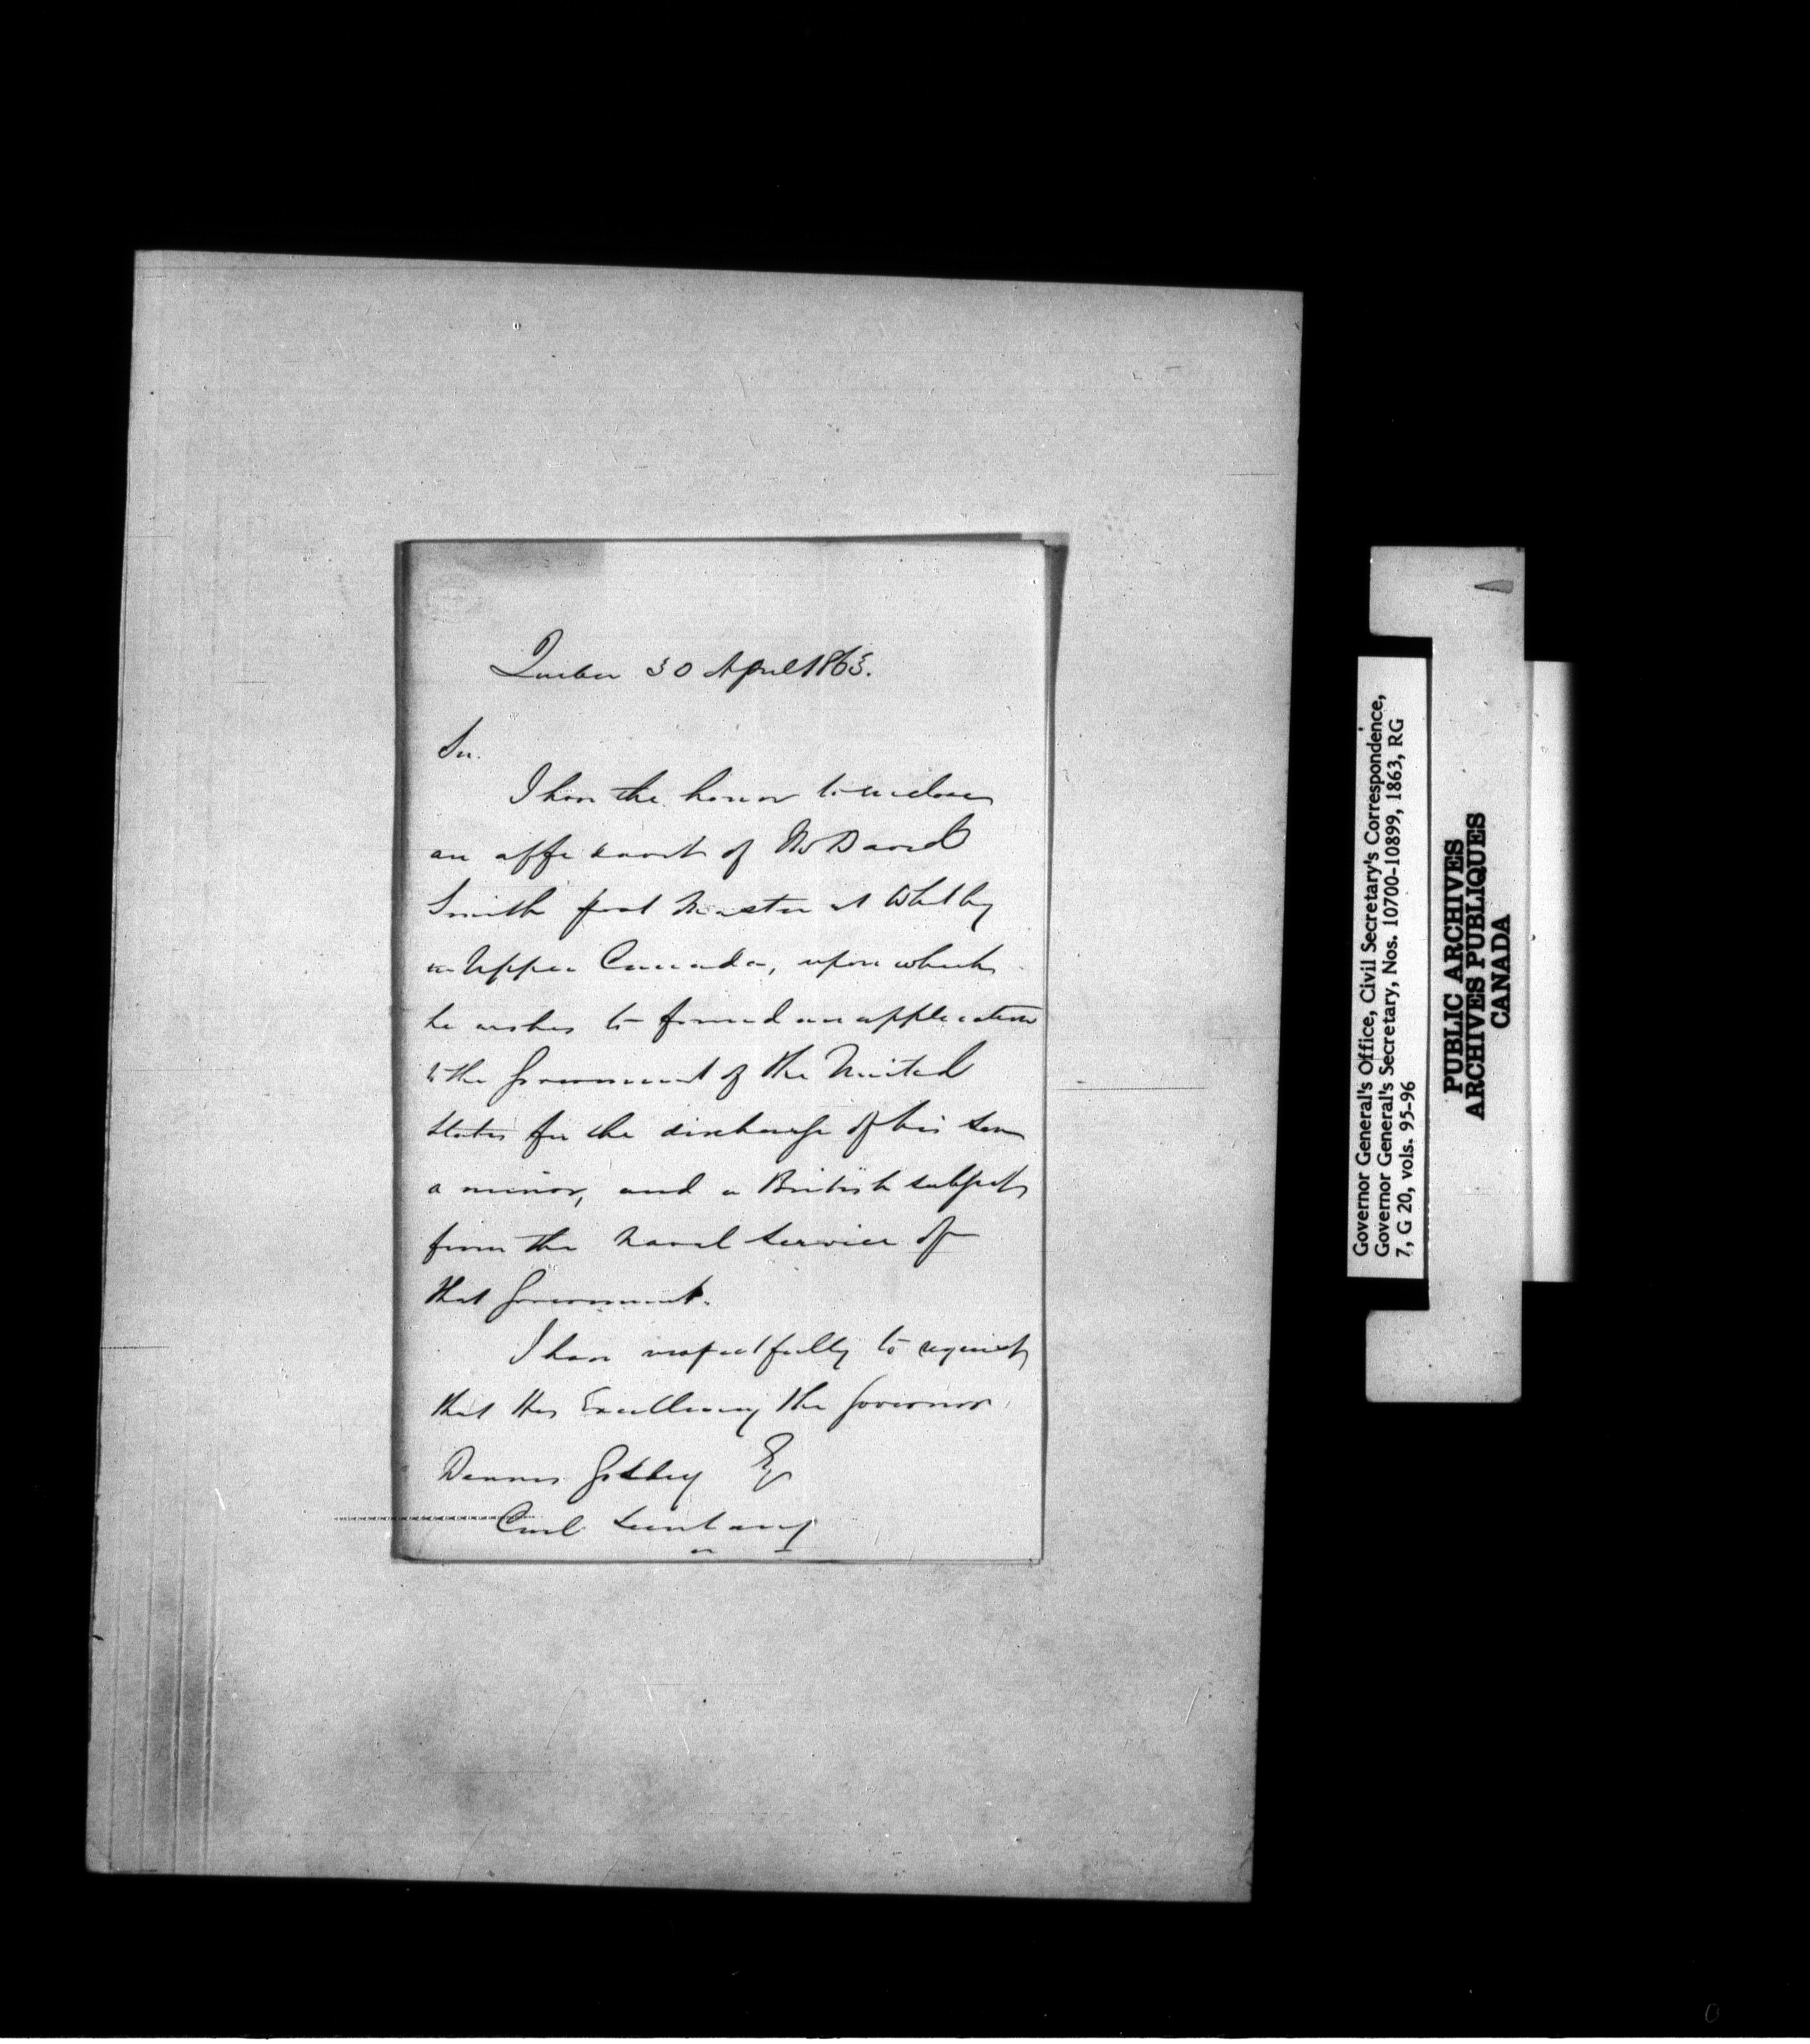 Quebec 30 April 1863.
Sir.
I have the honor to enclose
an affidavit of Mr David
Smith post Master at Whitby
in Upper Canada, upon which
he wishes to found an application
to the Government of the United
States for the discharge of his son
a minor, and a British subject
from the Naval Service of
that Government.
I have respectfully to request
that His Excellency the Governor
Dennis Godley Esq
Civil Secretary
Governor General's Office, Civil Secretary's Correspondence,
Governor General's Secretary, Nos. 10700-10899, 1863, RG
7, G 20, vols. 95-96
PUBLIC ARCHIVES
ARCHIVES PUBLIQUES
CANADA